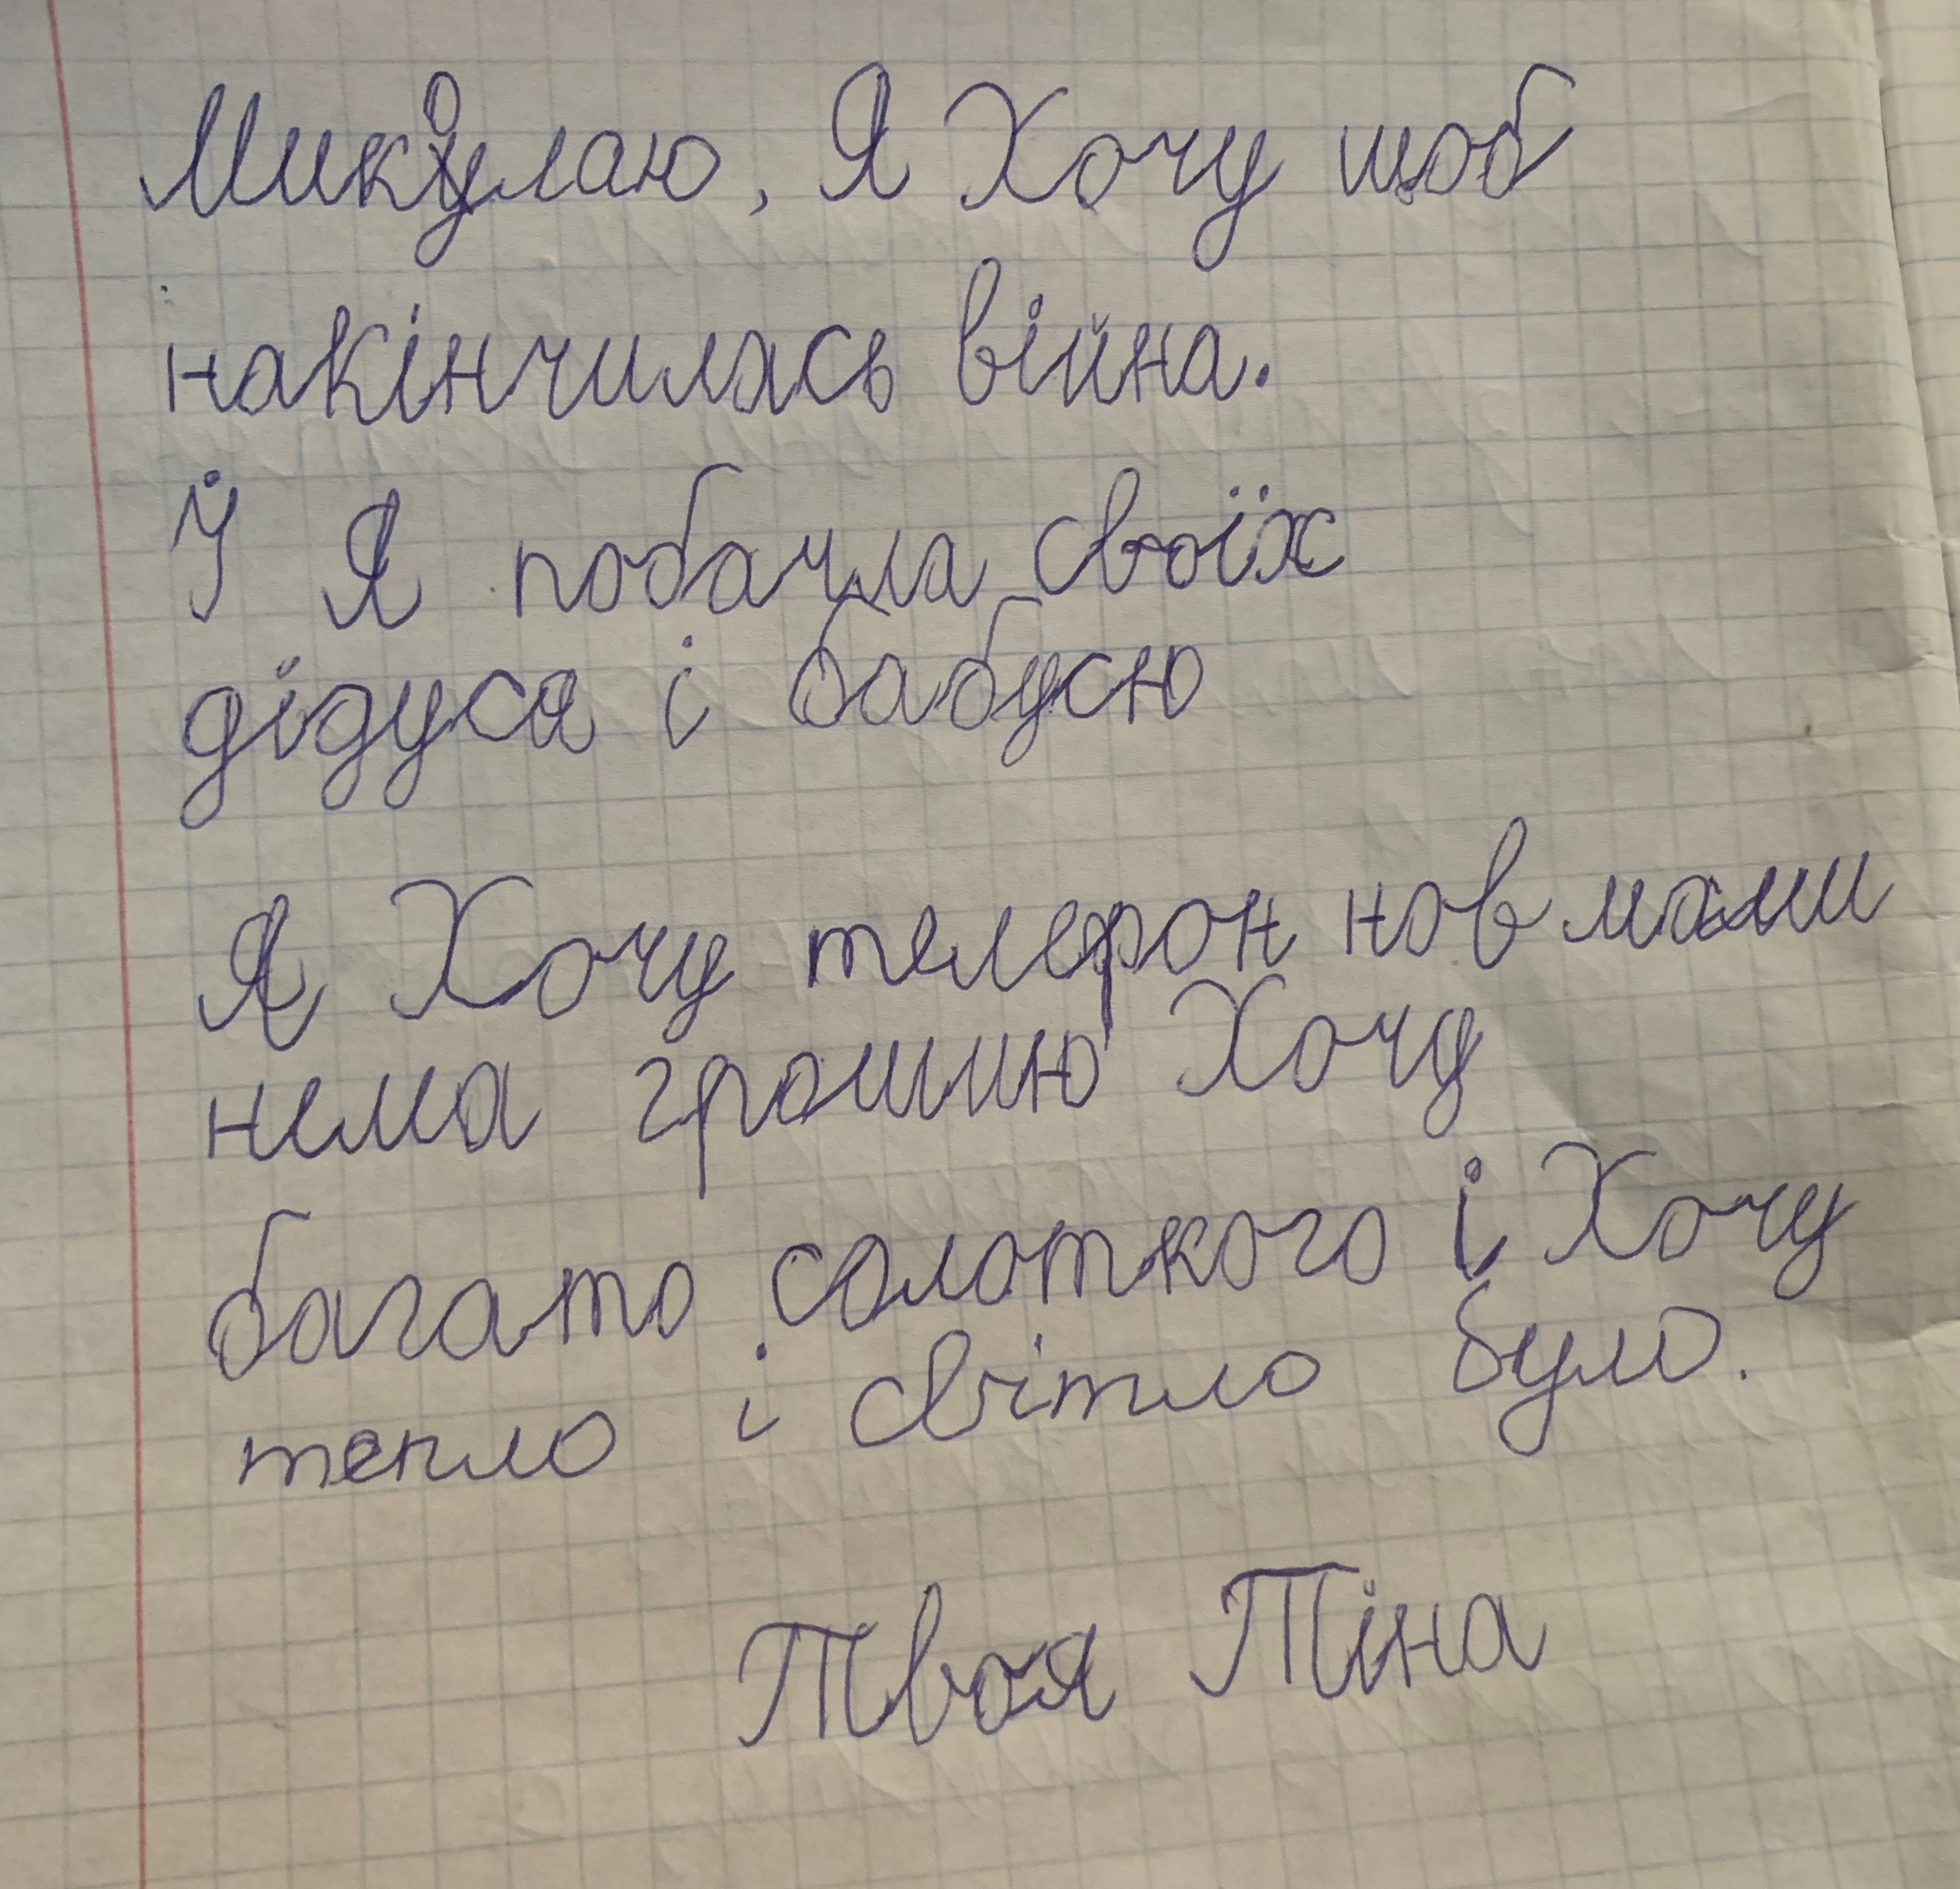 Миколаю, Я Хочу щоб
накінчилась війна.
І Я побачла своїх
дідуся і бабусю
Я Хочу телефон нов мами
нема грошию Хочу
багато солоткого і Хочу
тепло і світло було.
Твоя Тіна